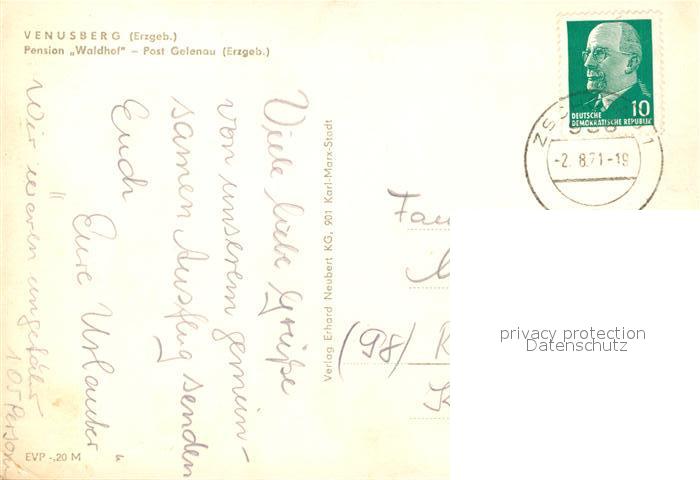 VENUSBERG (Erzgeb.)
Pension „Waldhof" – Post Gelenau (Erzgeb.)
Viele liebe Grüße
von unserem gemein-
samen Ausflug senden
Euch
Eure Urlauber
Wir waren ungefähr
105 Person
Verlag Erhard Neubert KG, 901 Karl-Marx-Stadt
EVP -,20 M
DEUTSCHE
DEMOKRATISCHE REPUBLIK
10
ZS
-2. 8.71-19
1
Fam
(98) R
privacy protection
Datenschutz